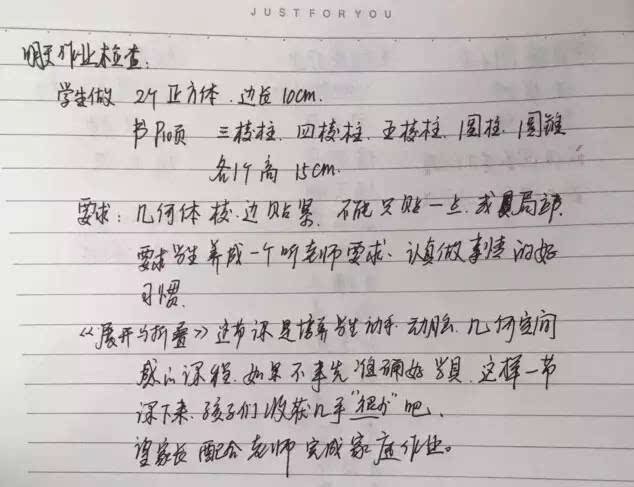 JUST FOR YOU
明天作业检查:
学生做 2个正方体.边长10cm.
书P10页 三棱柱.四棱柱.五棱柱.圆柱.圆锥
各1个高15cm.
要求:几何体棱.边贴紧.不能只贴一点.或局部.
要求学生养成一个听老师要求、认真做事情的好
习惯.
《展开与折叠》这节课是培养学生动手.动脑.几何空间
感的课程.如果不事先准确好学具.这样一节
课下来.孩子们收获几乎"很少"吧.
望家长配合老师完成家庭作业。